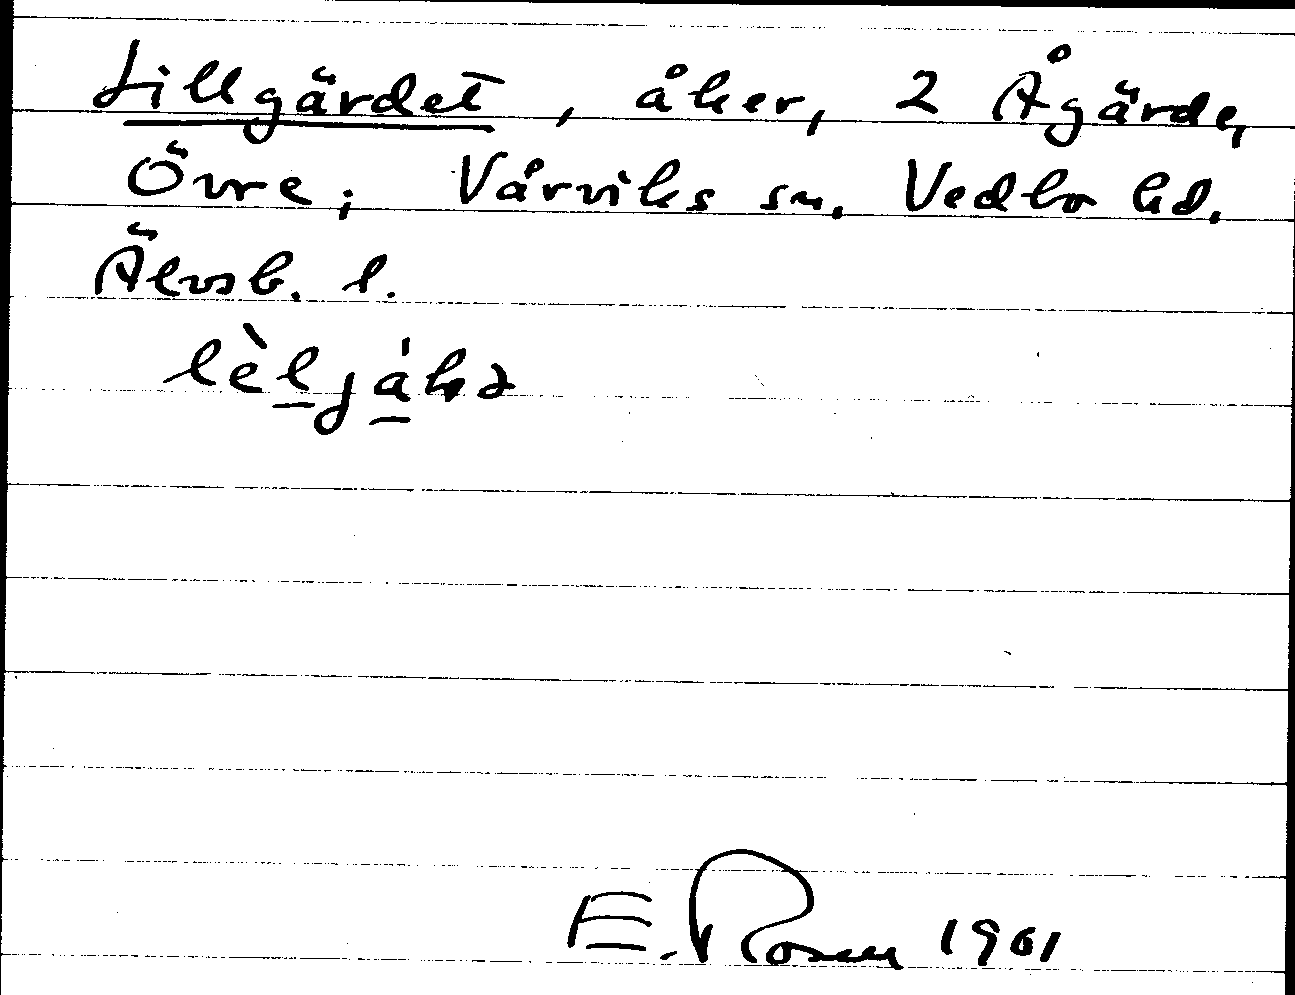 Lillgärdet, åker, 2 Ågärde,
Övre; Vårviks sn. Vedbo hd.
Älvsb. l.
lèljáka
E. Rosen 1901